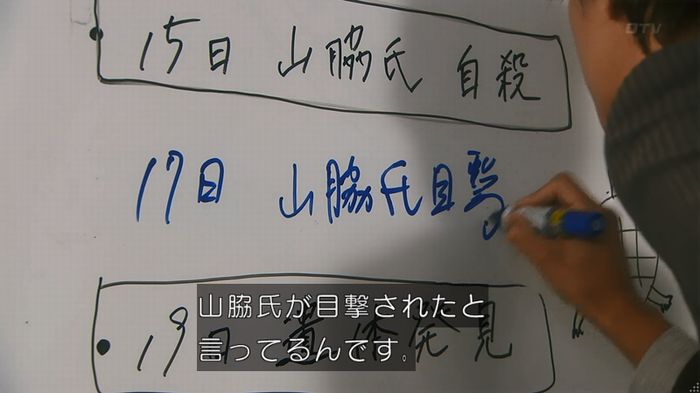 15日 山脇氏 自殺
17日 山脇氏目撃
19日 発見
山脇氏が目撃されたと
言ってるんです。